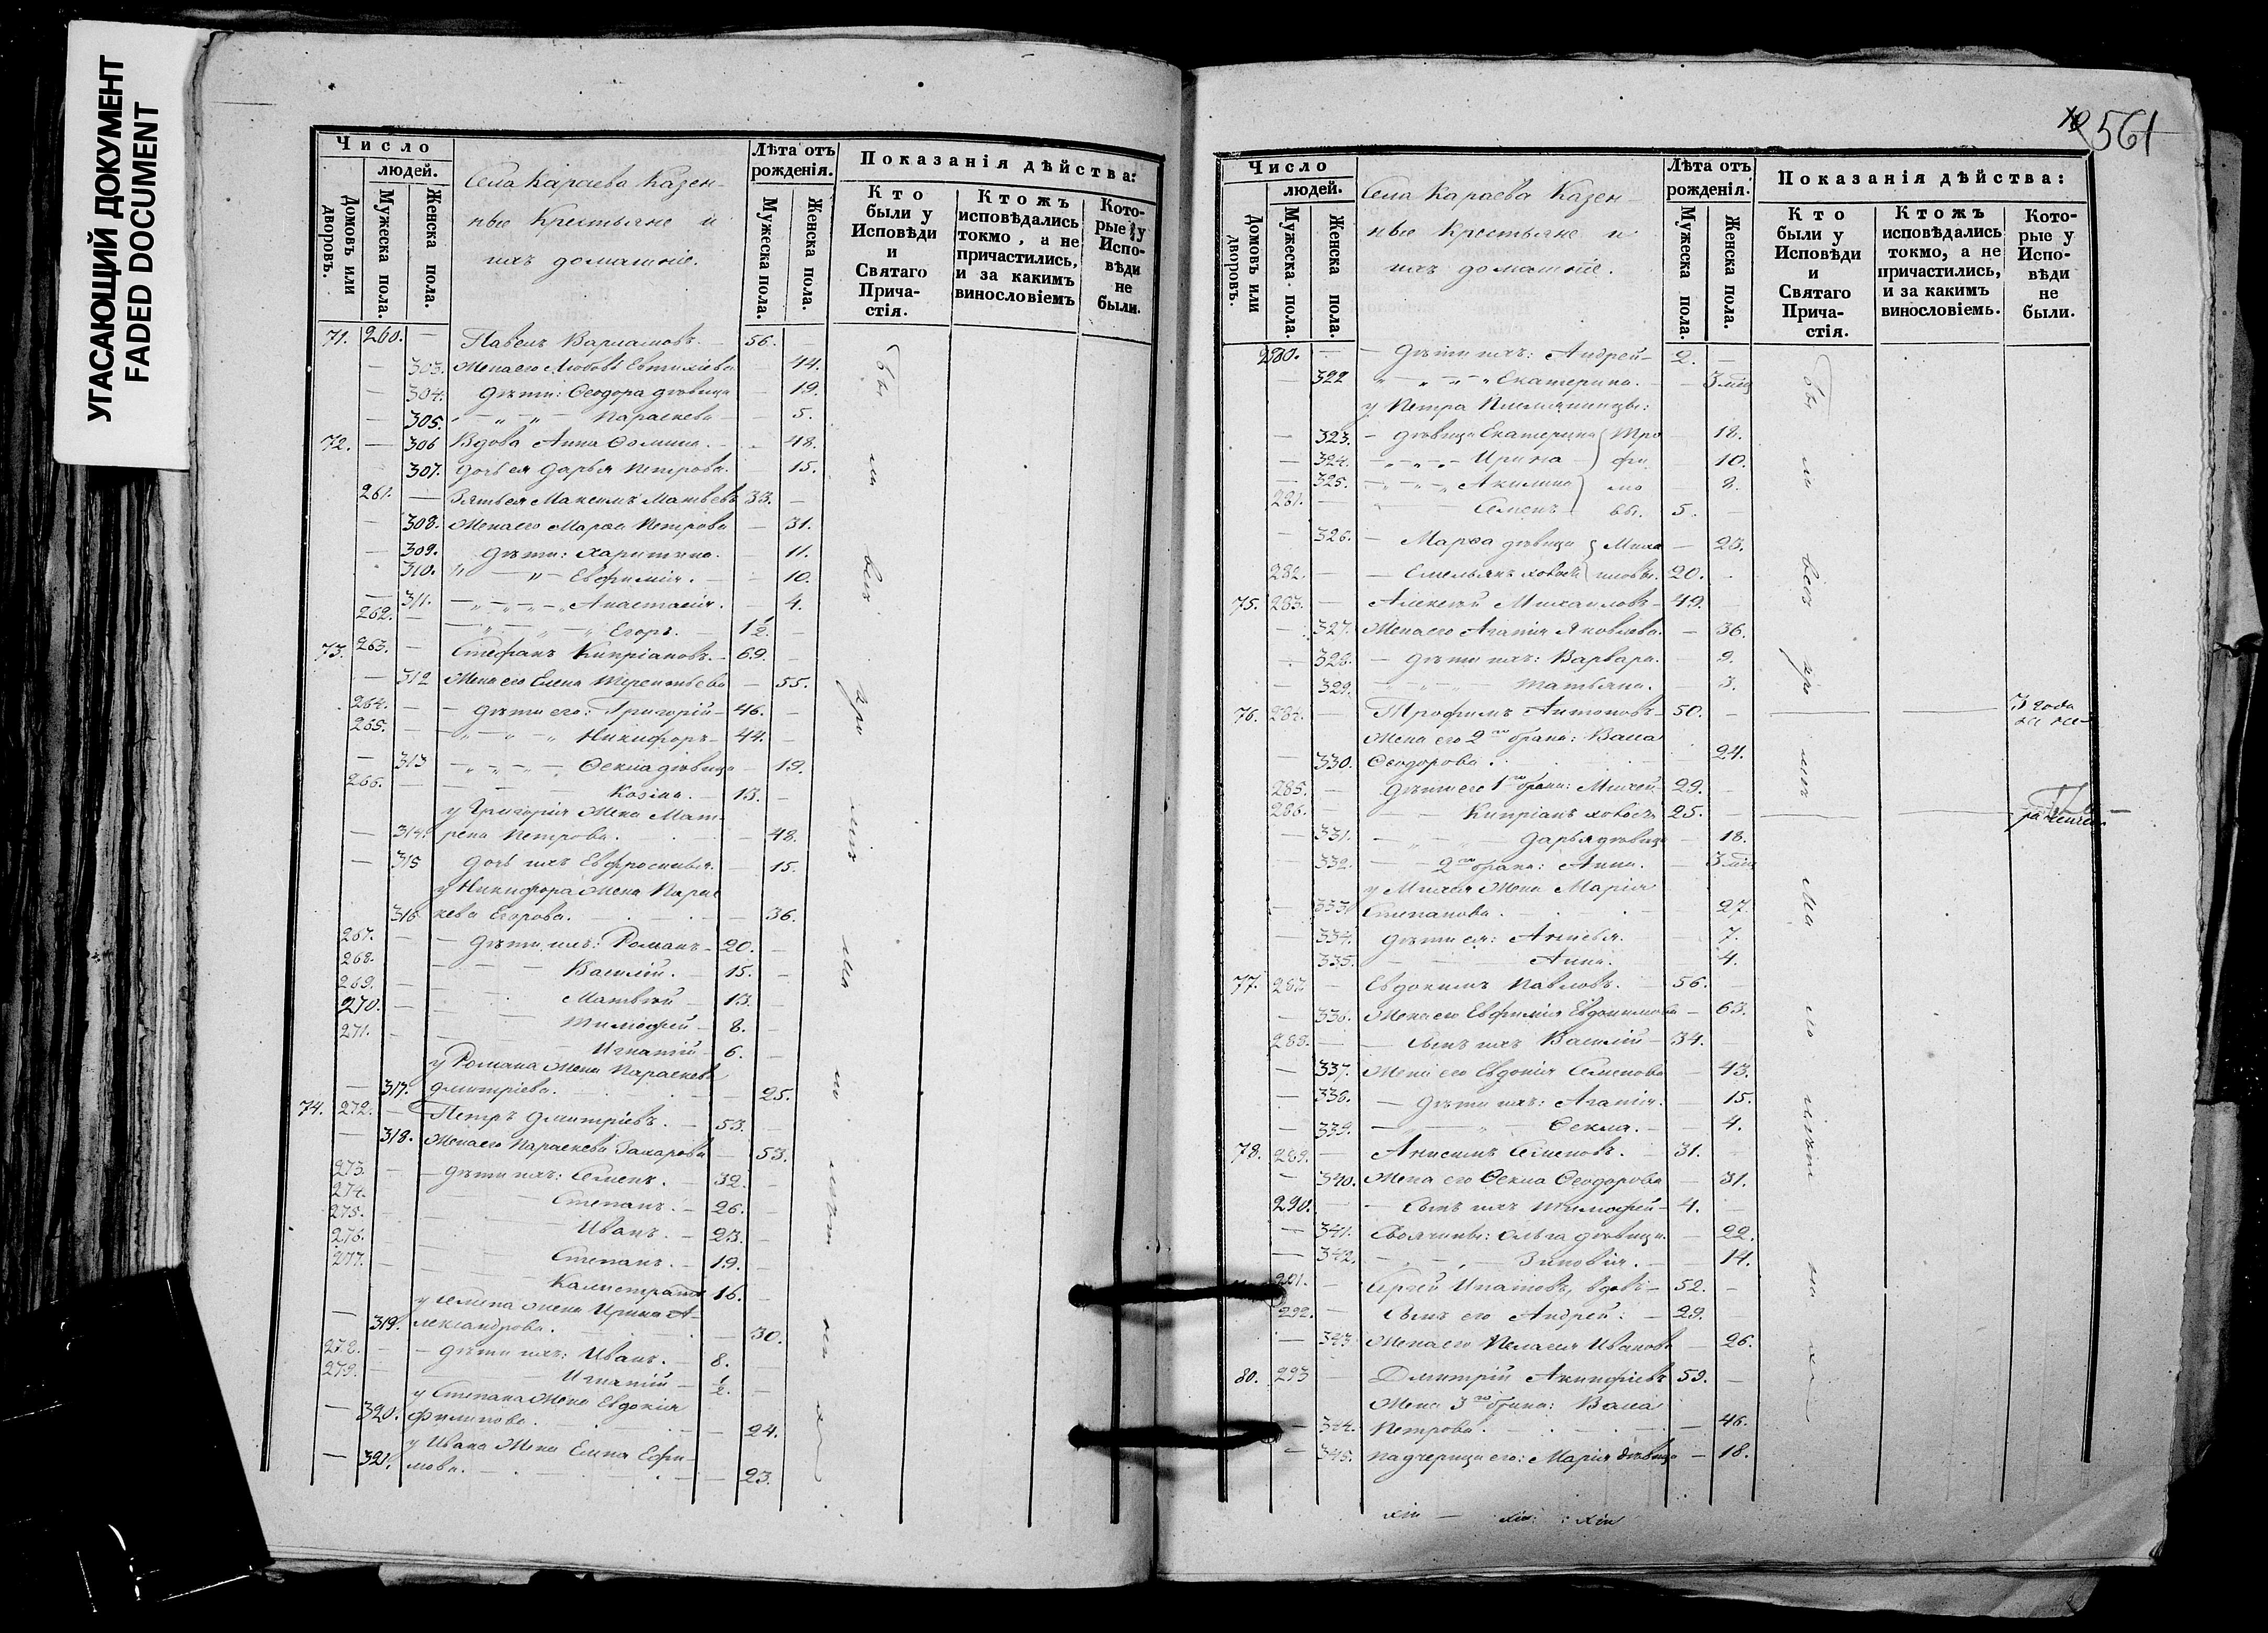 УГАСАЮЩИЙ ДОКУМЕНТ
FADED DOCUMENT
Число
людей.
Домовъ или дворовъ.
Мужеска пола.
Женска пола.
Села Караева Казен-
ные Крестьяне и
ихъ домашніе.
Лѣта отъ рожденія.
Мужеска пола.
Женска пола.
Показанія дѣйства:
Кто были у Исповѣди и Святаго Прича-стія.
Ктожъ исповѣдались токмо, а не причастились, и за какимъ винословіемъ
Кото-рые у Испо-вѣди не были.
71. 260. — Павелъ Варламовъ. — 56. —
— 303. Жена его Любовь Евтихіева — 44.
— 304. Дѣти: Ѳеодора дѣвица — 19.
— 305. Параскева — 5.
72. — 306 Вдова Анна Ѳомина. — 48.
307. Дочь ея Дарья Петрова. — 15.
261. — Зять ея Максимъ Матвѣевъ 33. —
— 308. Жена его Марѳа Петрова — 31.
— 309. Дѣти: Харитина. — 11.
310. Евфимія. — 10.
— 311. Анастасія. — 4.
262. — Егоръ. 1½. —
73. 263. — Стефанъ Кипріановъ. — 69. —
— 312 Жена его Елена Терентьева — 55.
264. — Дѣти его: Григорій — 46. —
265. — Никифоръ — 44. —
— 313 Ѳекла дѣвица — 19.
266. — Козма. — 13. —
у Григорія Жена Мат-
— 314. рена Петрова. — 48.
— 315 Дочь ихъ Евфросинья. — 15.
у Никифора Жена Парас
316 кева Егорова. — 36.
267. — Дѣти ихъ: Романъ — 20. —
268. Василій. — 15. —
269. Матвѣй — 13. —
270. — Тимофей — 8. —
271. — Игнатій — 6. —
у Романа Жена Параскева
— 317. Дмитріева. — 25.
74. 272. — Петръ Дмитріевъ. — 53. —
— 318. Жена его Параскева Захарова — 53.
273. — Дѣти ихъ: Семенъ. — 32. —
274. Степанъ. — 26. —
275. Иванъ. — 23. —
276. Степанъ. — 19. —
277. Калистратъ 16. —
у Семена Жена Ирина А-
— 319. лександрова. — 30.
278. — Дѣти ихъ: Иванъ. — 8.
279. — Игнатій — ½. —
у Степана Жена Евдокія
— 320. Филипова. — 24.
у Ивана Жена Елена Ефи-
— 321. мова. — 23.
561
Число
людей.
Домовъ или дворовъ.
Мужеска пола.
Женска пола.
Села Караева Казен-
ные Крестьяне и
ихъ домашніе.
Лѣта отъ рожденія.
Мужеска пола.
Женска пола.
Показанія дѣйства:
Кто были у Исповѣди и Святаго Прича-стія.
Ктожъ исповѣдались токмо, а не причастились, и за какимъ винословіемъ.
Кото-рые у Испо-вѣди не были.
280. — Дѣти ихъ: Андрей — 2. —
— 322 Екатерина. — 3 мѣс
у Петра Племянницы:
— 323. — дѣвица Екатерина Тро — 18.
— 324. Ирина фи — 10.
— 325. Акилина мо — 8.
281. — Семенъ вы. 5. —
— 326. — Марѳа дѣвица Миха — 23.
282. — Емельянъ холостъ иловы. 20. —
75. 283. — Алексѣй Михаиловъ — 49. —
— 327. Жена его Агапія Яковлева. — 36.
328. — Дѣти ихъ: Варвара. — 9.
— 329. Татьяна. — 3.
76. 284. — Трофимъ Антоновъ — 50. —
Жена его 2го брака: Васса
— 330. Ѳеодорова. 24.
285. — Дѣти его 1го брака: Михей 29. —
286. — Кипріанъ холостъ 25. —
— 331. Дарья дѣвица — 18.
332. — 2го брака: Анна. — 3 мѣс
у Михея Жена Марія
— 333. Степанова. 27.
— 334. Дѣти ея: 7.
335. Анна. 4.
77. 287. — Евдокимъ Павловъ. — 56. —
— 336. Жена его Евфимія Евдокимова — 63.
288. — Сынъ ихъ Василій — 34.
— 337. Жена его Евдокія Семенова — 43.
— 338. — Дѣти ихъ: Агапія. — 15.
— 339. Ѳекла. — 4.
78. 289. — Анисимъ Семеновъ. — 31. —
— 340. Жена его Ѳекла Ѳеодорова — 31.
290. — Сынъ ихъ Тимофей — 4. —
— 341. Свояченицы: Ольга дѣвица. — 22.
— 342. Зиновія. — 14.
291. — Сергѣй Игнатовъ, вдовъ — 52. —
292. — Сынъ его Андрей: — 29. —
— 343. Жена его Пелагея Иванова — 26.
80. 293 — Дмитрій Акинфіевъ 59. —
Жена 3го брака: Васса
— 344. Петрова. — 46.
— 345. Падчерица его: Марія дѣвица — 18.